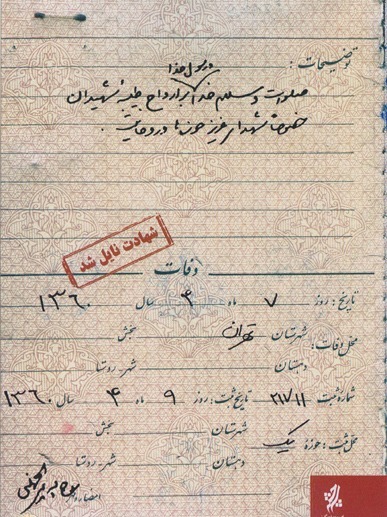 توضیحات :
و رسول خدا
صلوات و سلام خدا بر ارواح طیبهٔ شهیدان
خصوصاً شهدای عزیز حوزه‌ها و روحانیت .
شهادت نایل شد
وفات
تاریخ : روز ۷ ماه ۴ سال ۱۳۶۰
محل وفات : شهرستان تهران بخش
دهستان شهر - روستا
شماره ثبت ۲۱۷۱۱ تاریخ ثبت : روز ۹ ماه ۴ سال ۱۳۶۰
محل ثبت : حوزه یک شهرستان بخش
دهستان شهر - روستا
امضاء